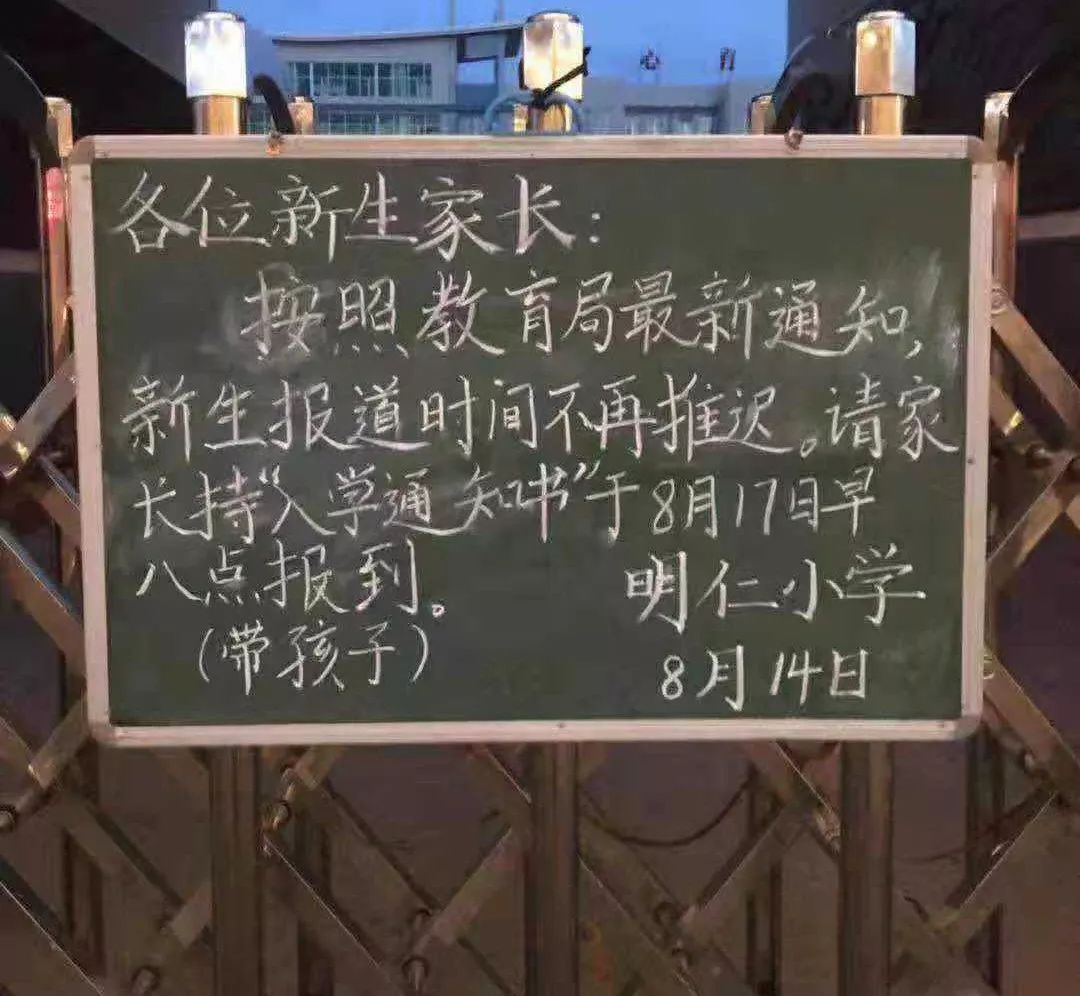 各位新生家长:
按照教育局最新通知,
新生报道时间不再推迟。请家
长持“入学通知书”于8月17日早
八点报到。
(带孩子)
明仁小学
8月14日